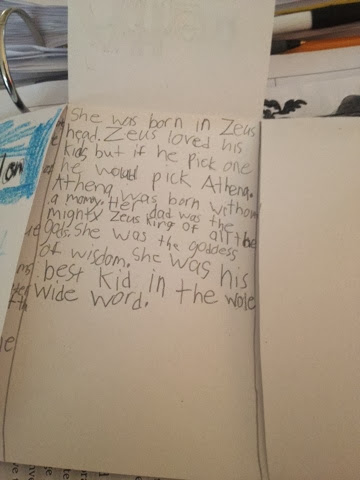 She was born in Zeus
head. Zeus loved his
kids but if he pick one
he would pick Athena.
Athena was born without
a mommy. Her dad was the
mighty Zeus king of all the
gods. She was the goddess
of wisdom. She was his
best kid in the wole
wide word.